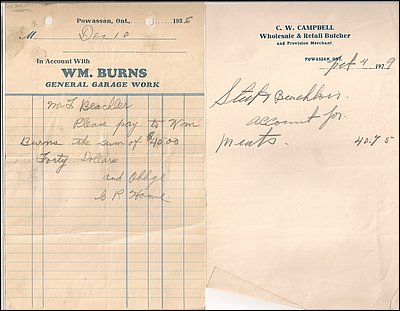 Powassan, Ont., 1935
M Dec 10
In Account With
WM. BURNS
GENERAL GARAGE WORK
Mr L
Please pay to Wm
Burns the sum of $40.00
Forty Dollars
and Oblige
C R Howe
C. W. CAMPBELL
Wholesale & Retail Butcher
and Provision Merchant.
POWASSAN, ONT. 4 1929
account for
Meats. 40.75